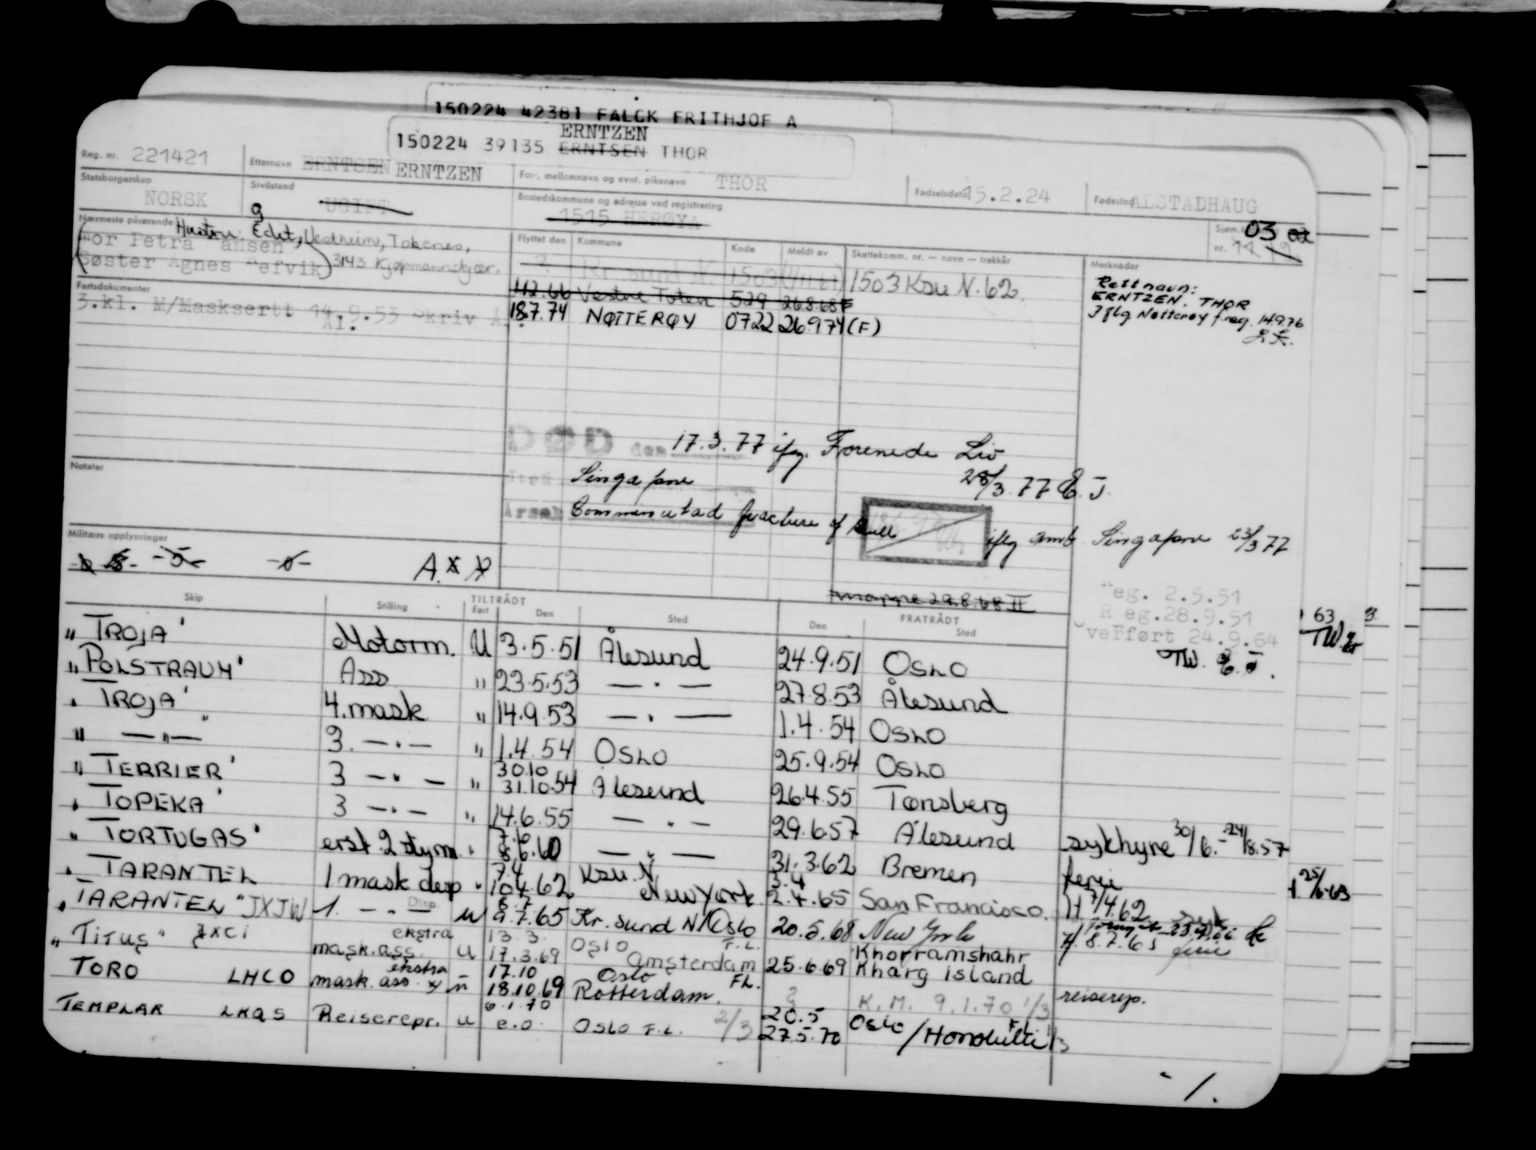 150224 42381 FALCK FRITHJOF A
ERNTZEN
150224 39135 ERNTSEN THOR
Reg. nr. 221421
Etternavn ERNTSEN ERNTZEN
For-, mellomnavn og evnt. pikenavn THOR
Fødselsdato 15.2.24
Fødested ALSTADHAUG
Statsborgerskap NORSK
Sivilstand
g UGIFT
Bostedskommune og adresse ved registrering
1515 HERØYA
Sjøm. 03
nr.
Nærmeste pårørende Hustru: Edit, Vestheim, Tokenes,
3143 Kjøpmannskjær.
Mor Petra Hansen
Søster Agnes Hefvik
Flyttet den Kommune Kode Meldt av Skattekomm. nr. – navn – trekkår
? Kr.sund N. 1503 1503 Ksu N. 62
11.2.66 Vestre Toten 529 26.8.68 F
18.7.74 NØTTERØY 0722 26974 (F)
Merknader
Rett navn:
ERNTZEN, THOR
Iflg Nøtterøy f.reg. 14.9.76
Fartsdokumenter
3.kl. M/Masksertt 14.9.53 Skriv
Ål.
DØD den 17.3.77 ifg. Forenede Liv
28/3.77
Sted Singapore
Årsak Comminutad fracture of skull iflg amb. Singapore 23/3 77
Notater
Militære opplysninger
A.
mappe 29.8.68 II
Reg. 2.5.51
Reg. 28.9.51
Overført 24.9.64
TW.
63
TW.
Skip Stilling TILTRÅDT Fart Den Sted Den FRATRÅDT Sted
"TROJA" Motorm. U 3.5.51 Ålesund 24.9.51 OSLO
"POLSTRAUM" Ass " 23.5.53 — " — 27.8.53 Ålesund
"TROJA" 4.mask " 14.9.53 — " — 1.4.54 OSLO
" — " — 3. — " — " 1.4.54 OSLO 25.9.54 OSLO
"TERRIER" 3 — " — " 30.10 31.10.54 Ålesund 26.4.55 Tønsberg
"TOPEKA" 3 — " — " 14.6.55 — " — 29.6.57 Ålesund sykhyre 30/6.-24/8.57
"TORTUGAS" erst. 2 " 7.6 8.6.60 — " — 31.3.62 Bremen ferie
"TARANTEL 1 mask disp " 7.4 10.4.62 Ksu. N New York 3.4 2.4.65 San Francisco. H 7/4.62
"TARANTEL" JXJW 1. — " — Disp. U 8.7 9.7.65 Kr. sund N/Oslo 20.5.68 New York H 8.7.65 ferie
"TITUS" JXCI ekstra mask.ass. U 13.3. 17.3.69 OSLO F.L. Amsterdam 25.6.69 Khorramshahr Kharg island
TORO LHCO ekstra mask.ass. 17.10 18.10.69 Oslo FL. Rotterdam. ? K.M. 9.1.70 1/3 reiserep.
TEMPLAR LHQS Reiserepr. U 6.1.70 e.o. OSLO F.L. 2/3 20.5 27.5.70 OSLO F.L. /Honolulu 1/3